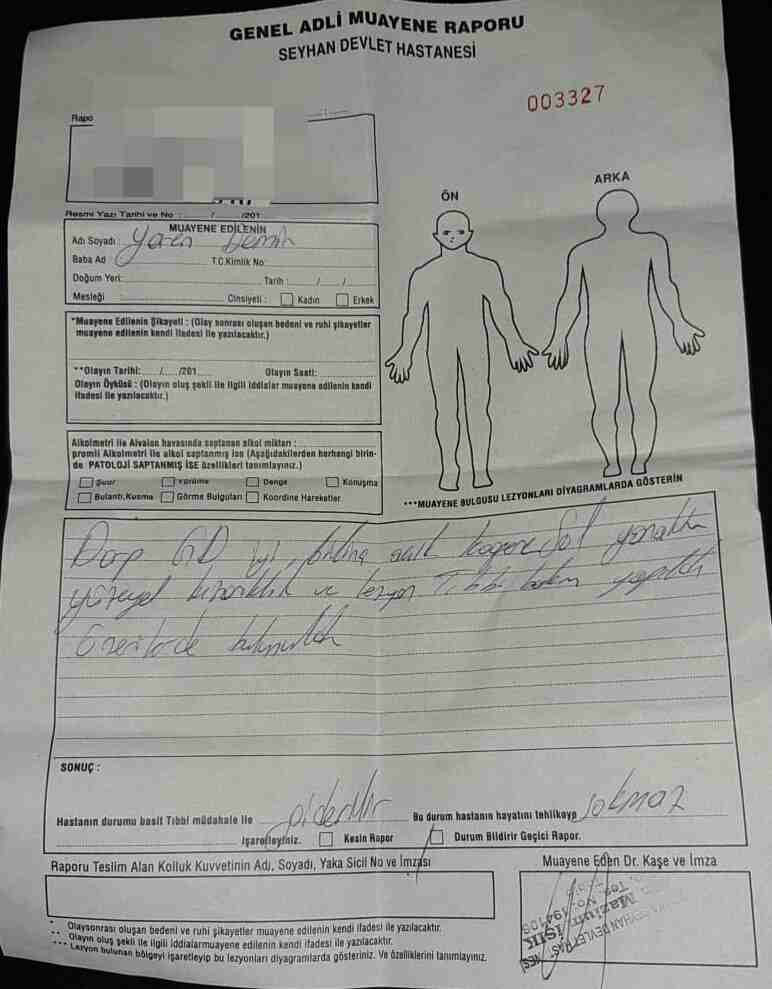 GENEL ADLİ MUAYENE RAPORU
SEYHAN DEVLET HASTANESİ
003327
Rapo
ÖN
ARKA
Resmi Yazı Tarihi ve No : / /201
MUAYENE EDİLENİN
Adı Soyadı : Yaren Demir
Baba Ad T.C.Kimlik No:
Doğum Yeri: Tarih : / /
Mesleği Cinsiyeti : Kadın Erkek
*Muayene Edilenin Şikayeti : (Olay sonrası oluşan bedeni ve ruhi şikayetler
muayene edilenin kendi ifadesi ile yazılacaktır.)
**Olayın Tarihi: / /201 Olayın Saati:
Olayın Öyküsü : (Olayın oluş şekli ile ilgili iddialar muayene edilenin kendi
ifadesi ile yazılacaktır.)
Alkolmetri ile Alveolan havasında saptanan alkol miktarı :
promil Alkolmetri ile alkol saptanmış ise (Aşağıdakilerden herhangi birin-
de PATOLOJİ SAPTANMIŞ İSE özellikleri tanımlayınız.)
Şuur Yürüme Denge Konuşma
Bulantı,Kusma Görme Bulguları Koordine Hareketler
***MUAYENE BULGUSU LEZYONLARI DİYAGRAMLARDA GÖSTERİN
Darp GD iyi, bilinç açık koopere Sol yanakta
yüzeyel kızarıklık ve lezyon Tıbbi bakım yapıldı
Önerilerde bulunuldu
SONUÇ :
Hastanın durumu basit Tıbbi müdahale ile giderilir Bu durum hastanın hayatını tehlikeye sokmaz
işaretleyiniz. Kesin Rapor Durum Bildirir Geçici Rapor.
Raporu Teslim Alan Kolluk Kuvvetinin Adı, Soyadı, Yaka Sicil No ve İmzası
Muayene Eden Dr. Kaşe ve İmza
* Olaysonrası oluşan bedeni ve ruhi şikayetler muayene edilenin kendi ifadesi ile yazılacaktır.
** Olayın oluş şekli ile ilgili iddialarmuayene edilenin kendi ifadesi ile yazılacaktır.
*** Lezyon bulunan bölgeyi işaretleyip bu lezyonları diyagramlarda gösteriniz. Ve özelliklerini tanımlayınız.